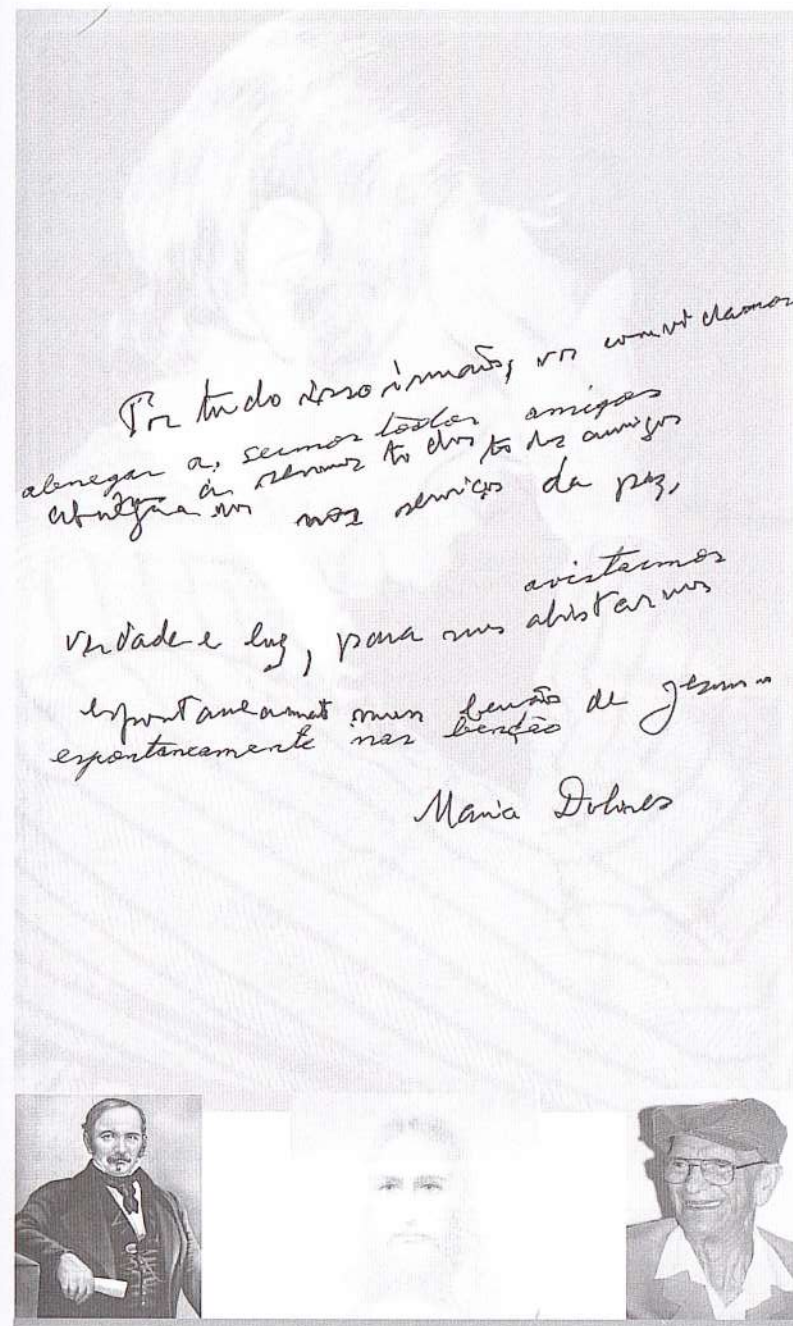 Por tudo isso irmãos, vos convidamos
abnegar a, sermos todos amigos
a sermos todos todos amigos
nos serviços da paz,
avistarmos
verdade e luz, para nos alistarmos
espontaneamnt benção de Jesus
espontaneamente nas benção
Maria Dolores